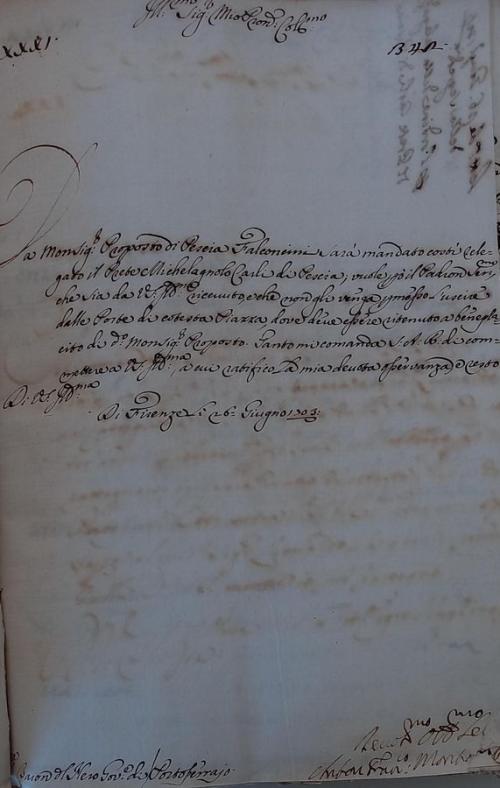 Ill.mo Sig.r Mio Pron. Col.mo
XXXI.
342.
Da Monsig.r Proposto di Pescia Falconcini sarà mandato costì rele-
gato il Prete Michelagnolo Carli di Pescia; vuole però il Padron Ser.mo
che sia da V.S. Ill.ma ricevuto, e che non gli venga permesso l'uscire
dalle Porte di cotesta Piazza, dove deve essere ritenuto a benepla-
cito di d.o Monsig.r Proposto. Tanto mi comanda S.A.R. di com-
mettere a V.S. Ill.ma, a cui ratifico la mia devota osservanza, e resto
Di V.S. Ill.ma
Di Firenze li 26. Giugno 1703.
Devot.mo Obb.mo Se
Fran.co
Baron del Nero Gov.re di Portoferraio